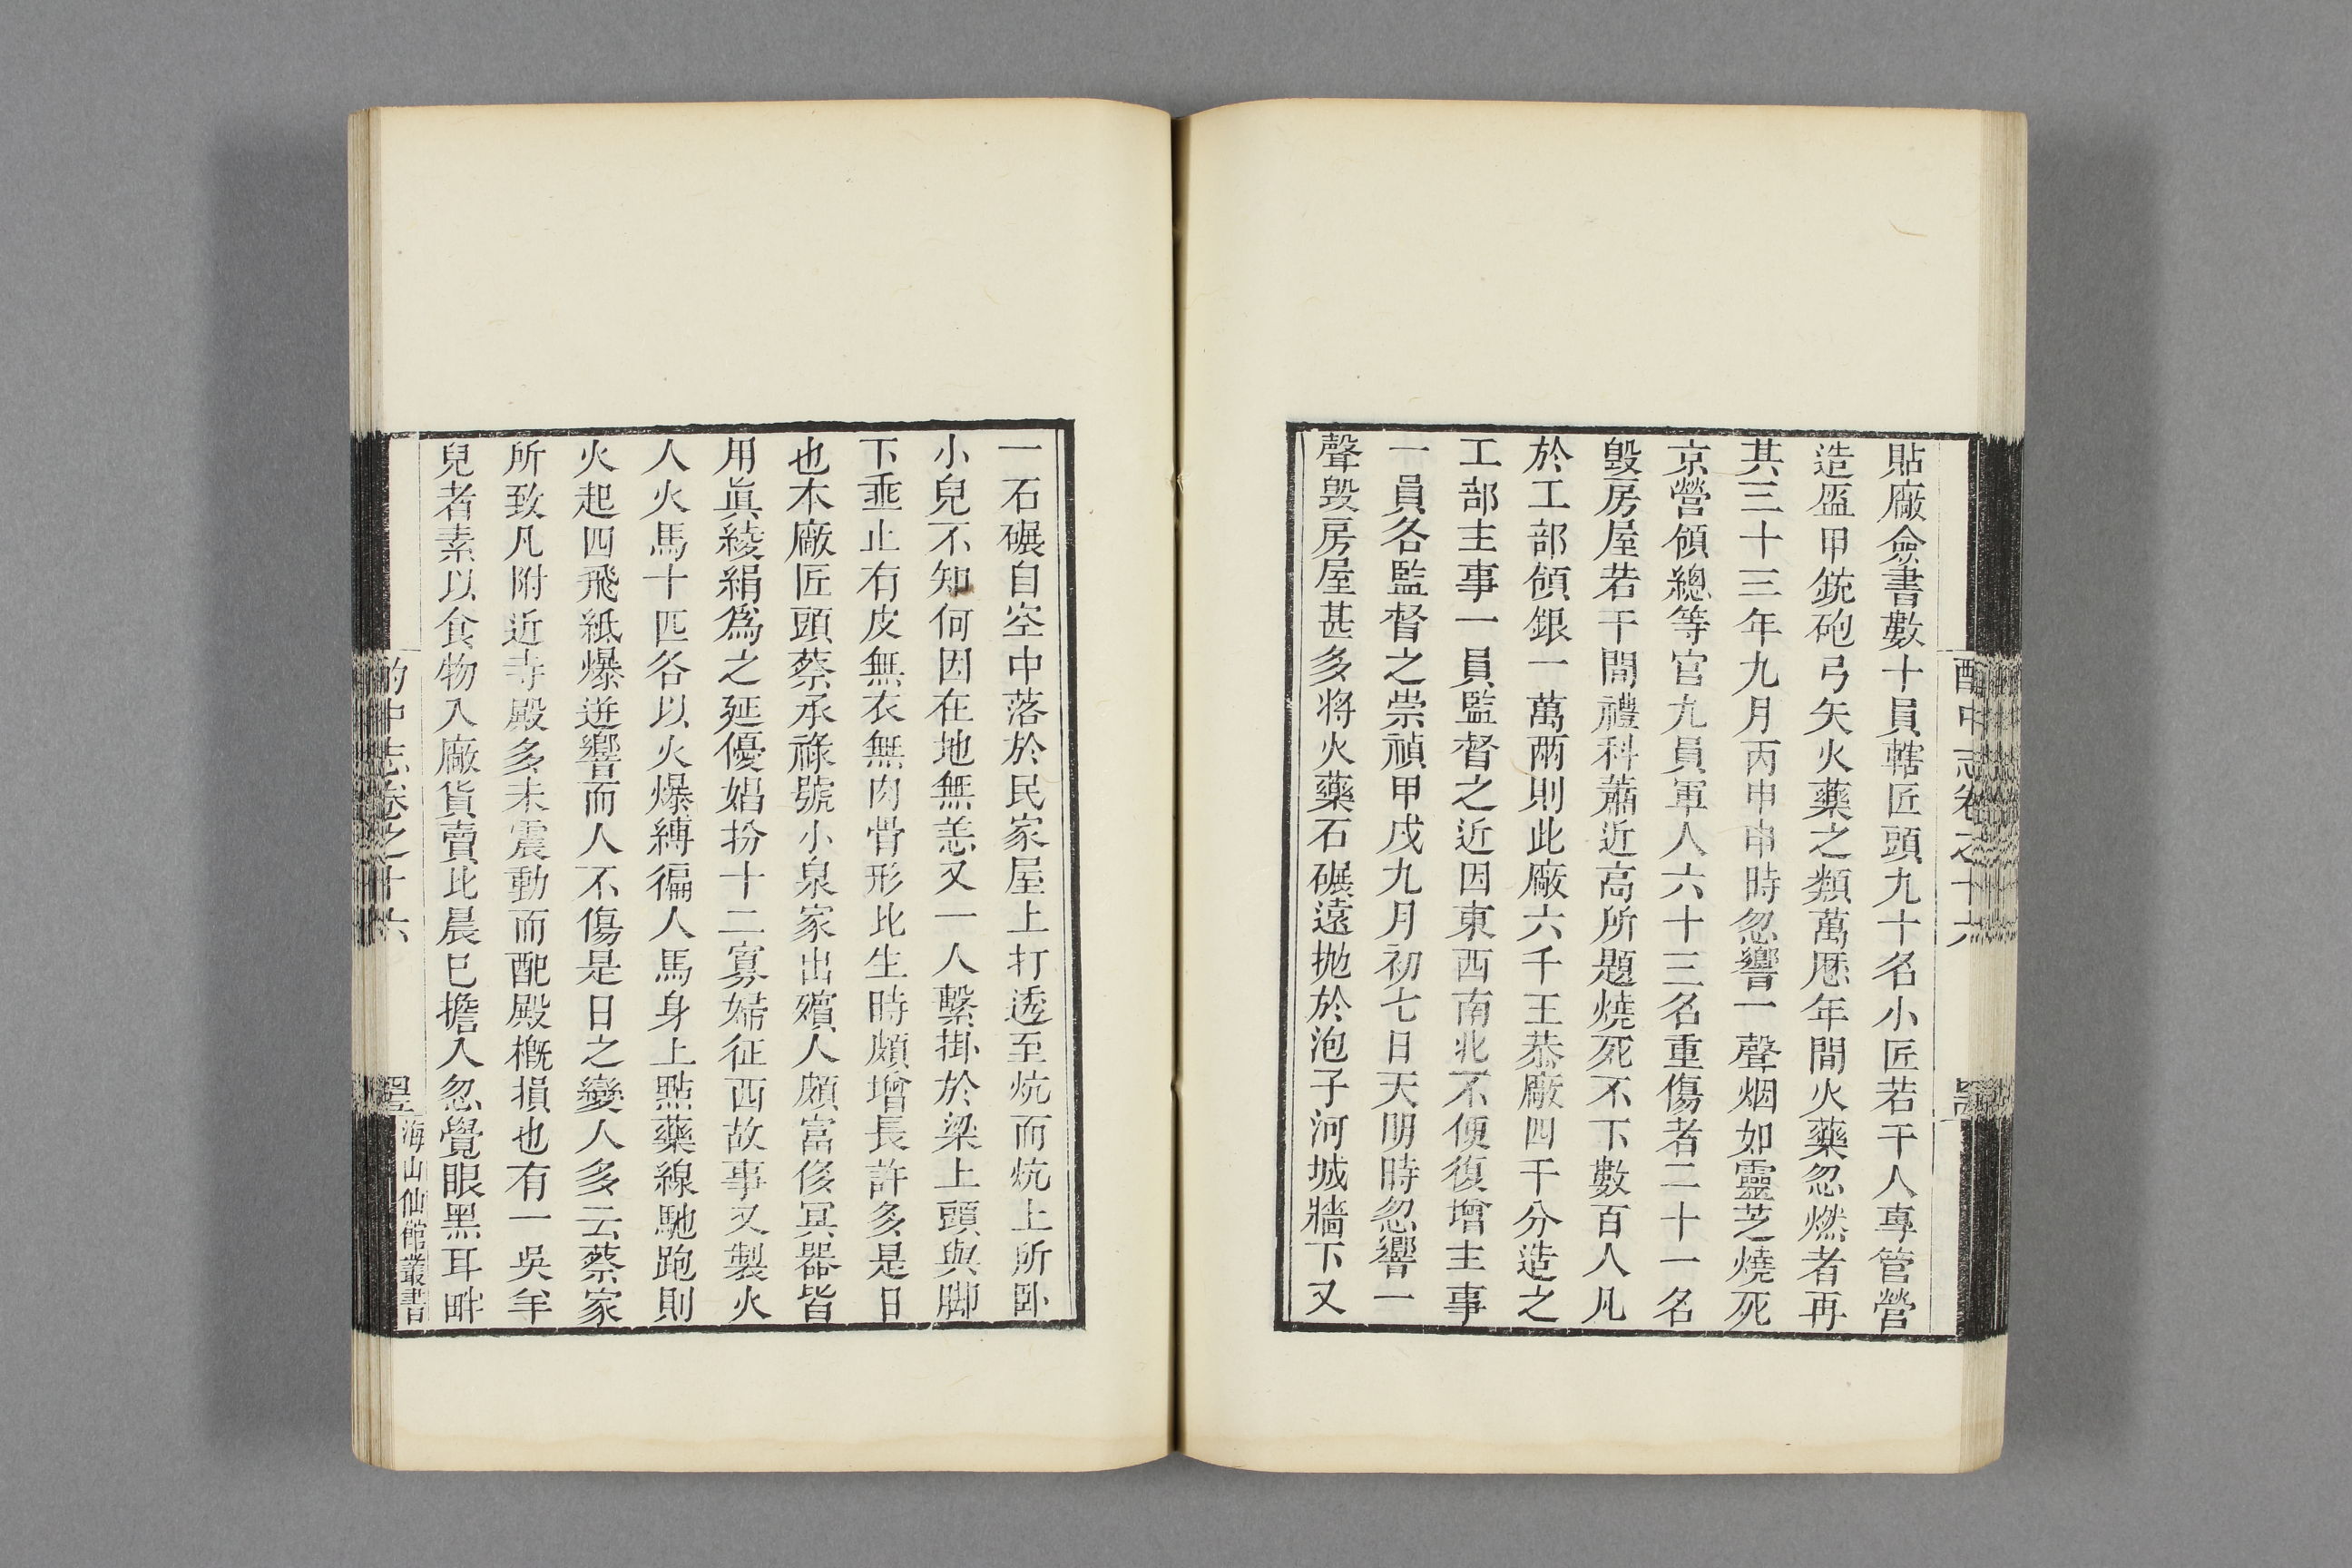 酌中志卷之十六
貼廠僉書數十員轄匠頭九十名小匠若干人專管營
造盔甲銃砲弓矢火藥之類萬厯年間火藥忽燃者再
其三十三年九月丙申申時忽響一聲烟如靈芝燒死
京營領總等官九員軍人六十三名重傷者二十一名
毀房屋若干間禮科蕭近高所題燒死不下數百人凡
於工部領銀一萬兩則此廠六千王恭廠四千分造之
工部主事一員監督之近因東西南北不便復增主事
一員各監督之崇禎甲戌九月初七日天明時忽響一
聲毀房屋甚多將火藥石碾遠拋於泡子河城牆下又
一石碾自空中落於民家屋上打透至炕而炕上所臥
小兒不知何因在地無恙又一人繫掛於梁上頭與脚
下垂止有皮無衣無肉骨形比生時頗增長許多是日
也木廠匠頭蔡承祿號小泉家出殯人頗富侈冥器皆
用眞綾絹爲之延優娼扮十二寡婦征西故事又製火
人火馬十匹各以火爆縛徧人馬身上點藥線馳跑則
火起四飛紙爆迸響而人不傷是日之變人多云蔡家
所致凡附近寺殿多未震動而配殿槪損也有一吳羊
兒者素以食物入廠貨賣此晨已擔入忽覺眼黑耳畔
酌中志卷之十六
海山仙館叢書